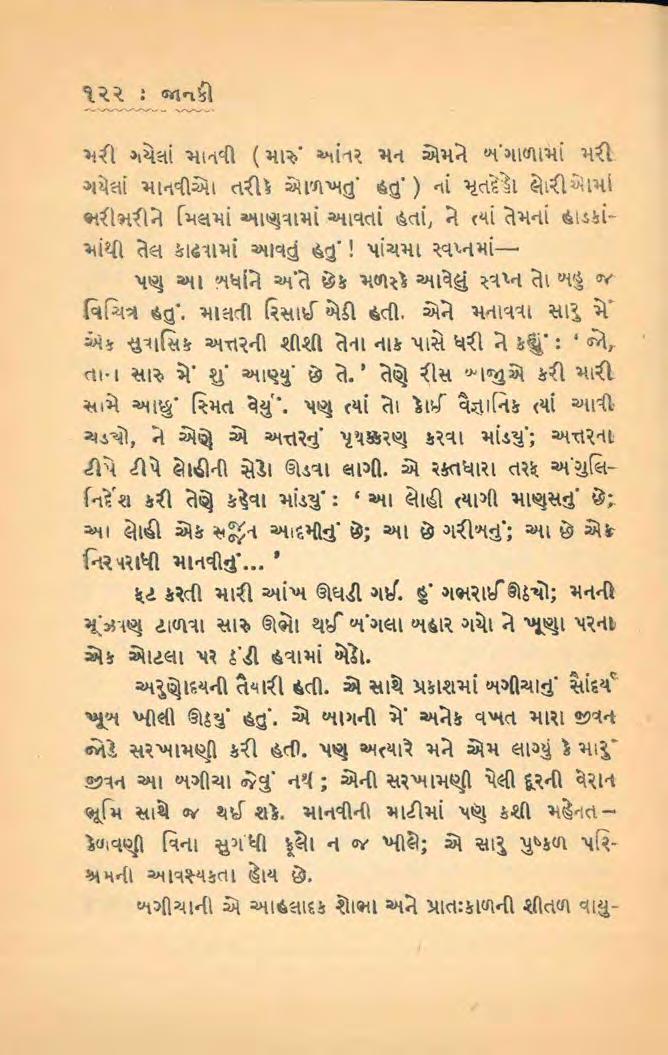 ૧૨૨ : જાનકી
મરી ગયેલાં માનવી ( મારું આંતર મન એમને બંગાળામાં મરી
ગયેલાં માનવીઓ તરીકે ઓળખતું હતું ) નાં મૃતદેહો લોરીઓમાં
ભરીભરીને મિલમાં આણવામાં આવતાં હતાં, ને ત્યાં તેમનાં હાડકાં-
માંથી તેલ કાઢવામાં આવતું હતું ! પાંચમા સ્વપ્નમાં—
પણ આ બધાંને અંતે છેક મળસ્કે આવેલું સ્વપ્ન તો બહુ જ
વિચિત્ર હતું. માલતી રિસાઈ બેઠી હતી. એને મનાવવા સારુ મેં
એક સુવાસિક અત્તરની શીશી તેના નાક પાસે ધરી ને કહ્યું : ‘ જો,
તારા સારુ મેં શું આણ્યું છે તે. ’ તેણે રીસ બાજુએ કરી મારી
સામે આછું સ્મિત વેર્યું. પણ ત્યાં તો કોઈ વૈજ્ઞાનિક ત્યાં આવી
ચડયો, ને એણે એ અત્તરનું પૃથક્કરણ કરવા માંડયું; અત્તરના
ટીપે ટીપે લોહીની સેડો ઊડવા લાગી. એ રક્તધારા તરફ અંગુલિ-
નિર્દેશ કરી તેણે કહેવા માંડયું : ‘ આ લોહી ત્યાગી માણસનું છે;
આ લોહી એક સજ્જન આદમીનું છે; આ છે ગરીબનું; આ છે એક
નિરપરાધી માનવીનું... ’
ફટ કરતી મારી આંખ ઊઘડી ગઈ. હું ગભરાઈ ઊઠયો; મનની
મૂંઝવણ ટાળવા સારુ ઊભો થઈ બંગલા બહાર ગયો ને ખૂણા પરના
એક ઓટલા પર ઠંડી હવામાં બેઠો.
અરુણોદયની તૈયારી હતી. એ સાથે પ્રકાશમાં બગીચાનું સૌંદર્ય
ખૂબ ખીલી ઊઠયું હતું. એ બાગની મેં અનેક વખત મારા જીવન
જોડે સરખામણી કરી હતી. પણ અત્યારે મને એમ લાગ્યું કે મારું
જીવન આ બગીચા જેવું નથી ; એની સરખામણી પેલી દૂરની વેરાન
ભૂમિ સાથે જ થઈ શકે. માનવીની માટીમાં પણ કશી મહેનત—
કેળવણી વિના સુગંધી ફૂલો ન જ ખીલે; એ સારુ પુષ્કળ પરિ-
શ્રમની આવશ્યકતા હોય છે.
બગીચાની એ આહલાદક શોભા અને પ્રાતઃકાળની શીતળ વાયુ-